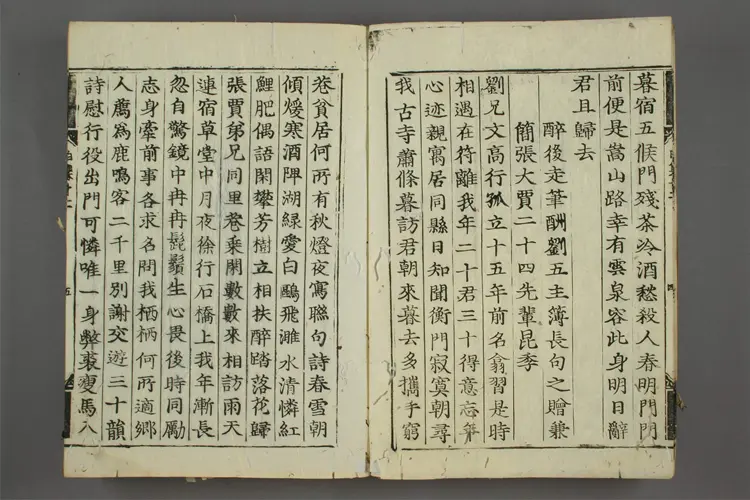 暮宿五侯門殘茶冷酒愁殺人春明門門
前便是嵩山路幸有雲泉容此身明日辭
君且歸去
醉後走筆酬劉五主簿長句之贈兼
簡張大賈二十四先輩昆季
劉兄文高行孤立十五年前名翕習是時
相遇在符離我年二十君三十得意忘年
心迹親寓居同縣日知聞衡門寂寞朝尋
我古寺蕭條暮訪君朝來暮去多攜手窮
四
巷貧居何所有秋燈夜寫聯句詩春雪朝
傾煖寒酒陴湖綠愛白鷗飛濉水清憐紅
鯉肥偶語閑攀芳樹立相扶醉踏落花歸
張賈弟兄同里巷乗閑數數來相訪雨天
連宿草堂中月夜徐行石橋上我年漸長
忽自驚鏡中冉冉髭鬚生心畏後時同勵
志身牽前事各求名問我栖栖何所適鄉
人薦爲鹿鳴客二千里別謝交遊三十韻
詩慰行役出門可憐唯一身弊裘瘦馬入
五